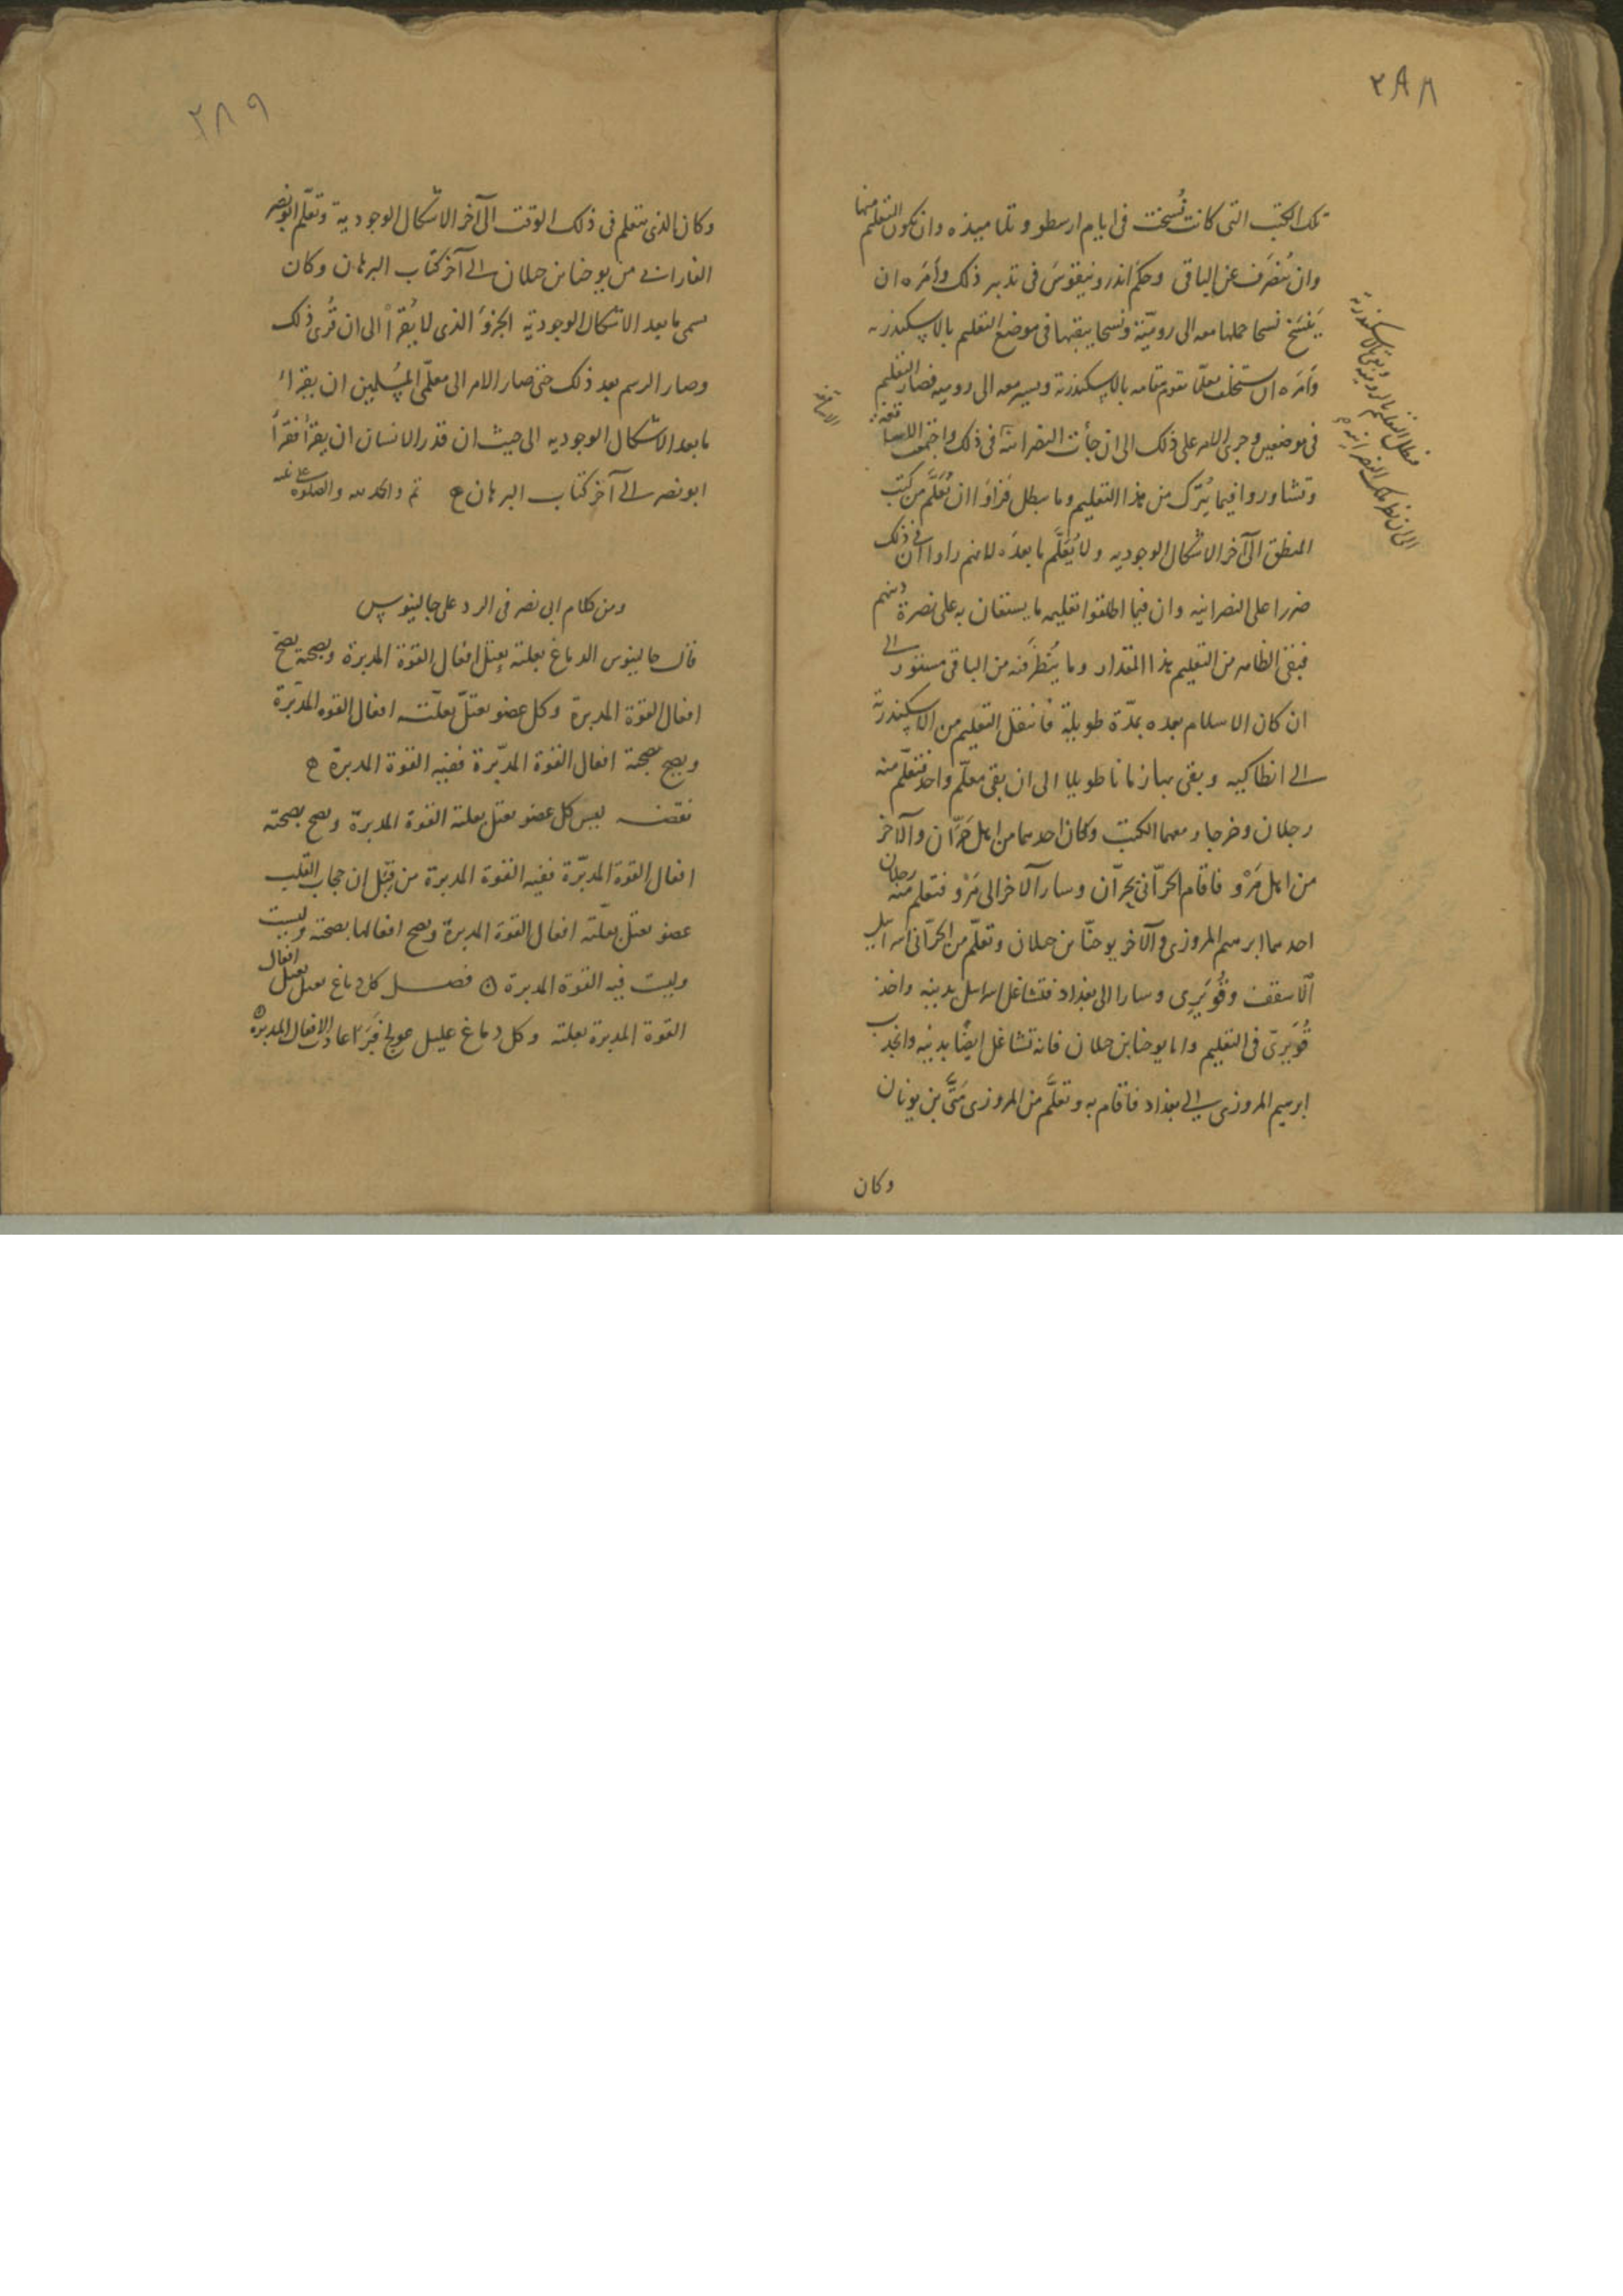 ٢٨٨
تلك الكتب التى كانت نُسخت فى ايام ارسطو وتلاميذه وان يكون التعلم منها
وان يُنصَرف عن الباقى وحكم اندرونيقوسَ فى تدبير ذلك وأمَره ان
يَنسَخ نسخا حملها معه الى روميّة ونسخا يبقيها فى موضع التعليم بالاسكندريه
وأمَره ان يستخلف معلّما يقوم مقامه بالاسكندرية ويسير معه الى روميه فصار التعليم
فى موضعين وجرى الامر على ذلك الى ان جأت النصرانية
فبطل التعليم بالروميه وبقى بالاسكندرية
الى ان نظر ملك النصرانيه
فى ذلك واجتمعت الاساقفة
وتشاوروا فيما يُترك من هذا التعليم وما يبطل فراوا ان يُعَلَّم من كتب
المنطق الى آخر الاشكال الوجوديه ولا يُعَلَّم ما بعدَه لانهم راوا ان فى ذلك
ضررا على النصرانيه وان فيما اطلقوا تعليمه ما يستعان به على نصرة دينهم
فبقى الظاهر من التعليم هذا المقدار وما يُنظَر فيه من الباقى مستور الى
ان كان الاسلام بعده بمدّة طويلة فانتقل التعليم من الاسكندرية
الى انطاكيه وبقى بها زمانا طويلا الى ان بقى معلّم واحد فتعلّم منه
رجلان وخرجا ومعهما الكتب وكان احدهما من اهل حَرّان والآخر
من اهل مَرْو فاقام الحرّانى بحرّان وسار الآخر الى مَرْو فتعلم منه رجلان
احدهما ابرهيم المروزى والآخر يوحنّا بن حيلان وتعلّم من الحرّانى اسرائيل
الاسقف وقُوَيرى وسارا الى بغداد فتشاغل اسرائيل بدينه واخذ
قُوَيرى فى التعليم واما يوحنا بن حيلان فانه تشاغل ايضًا بدينه وانحدر
ابرهيم المروزى الى بغداد فاقام به وتعلَّم من المروزى مَتَّى بن يونان
وكان
٢٨٩
وكان الذى يتعلم فى ذلك الوقت الى آخر الاشكال الوجودية وتعلّم ابو نصر
الفارابى من يوحنا بن حيلان الى آخر كتاب البرهان وكان
يسمى ما بعد الاشكال الوجوديّة الجزوَ الذى لا يُقرأ الى ان قُرى ذلك
وصار الرسم بعد ذلك حتى صار الامر الى معلّمى المسلمين ان يقرأ
ما بعد الاشكال الوجوديه الى حيث ان قدر الانسان ان يقرأ فقرأ
ابو نصر الى آخر كتاب البرهان تم والحمد لله والصلوة على نبيه
ومن كلام ابى نصر فى الرد على جالينوس
قال جالينوس الدماغ بعلته يعتل افعال القوة المدبرة وبصحته يصح
افعال القوة المدبرة وكل عضو يعتلّ بعلّته افعال القوه المدبّرة
ويصح بصحته افعال القوة المدبّرة ففيه القوة المدبرة
نقضه ليس كل عضو يعتل بعلته القوة المدبرة ويصح بصحته
افعال القوة المدبّرة ففيه القوة المدبرة من قِبَل ان حجاب القلب
عضو يعتل بعلّته افعال القوة المدبرة ويصح افعالها بصحته وليست
وليست فيه القوة المدبرة فصل كل دماغ يعتل يعتل افعال
القوة المدبرة بعلته وكل دماغ عليل عولج فبَرَأ عادت الافعال المدبره